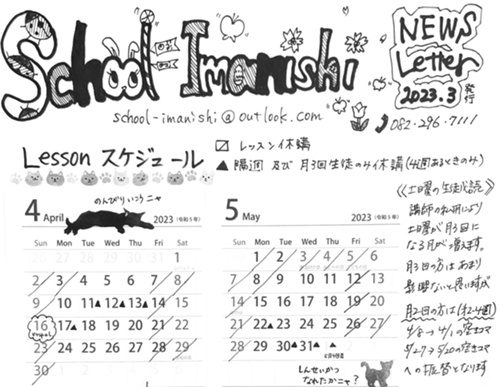 School Imanishi
NEWS
Letter
2023.3
発行
school-imanishi@outlook.com
082-296-7111
レッスン休講
▲ 隔週 及び 月3回生徒のみ休講(4週あるときのみ)
Lesson スケジュール
のんびりいこうニャ
4 April 2023 (令和5年)
Sun Mon Tue Wed Thu Fri Sat
1
2 3 4 5 6 7 8
9 10 11▲ 12▲ 13▲ 14 15
16 17▲ 18 19 20 21 22
23 24 25 26 27 28 29
30
5 May 2023 (令和5年)
Sun Mon Tue Wed Thu Fri Sat
1 2 3 4 5 6
7 8 9 10 11 12 13
14 15 16 17 18 19 20
21 22▲ 23 24 25 26 27
28 29 30▲ 31▲ ▲
しんせいかつ
なれたかニャ?
《土曜の生徒必読》
講師の
土曜が月3回に
なる月が増えます。
月3回の方はあまり
影響ないと思いますが
月2回の方は(第2・4週)
4/8→4/1の
5/27→5/20の
への振替となります